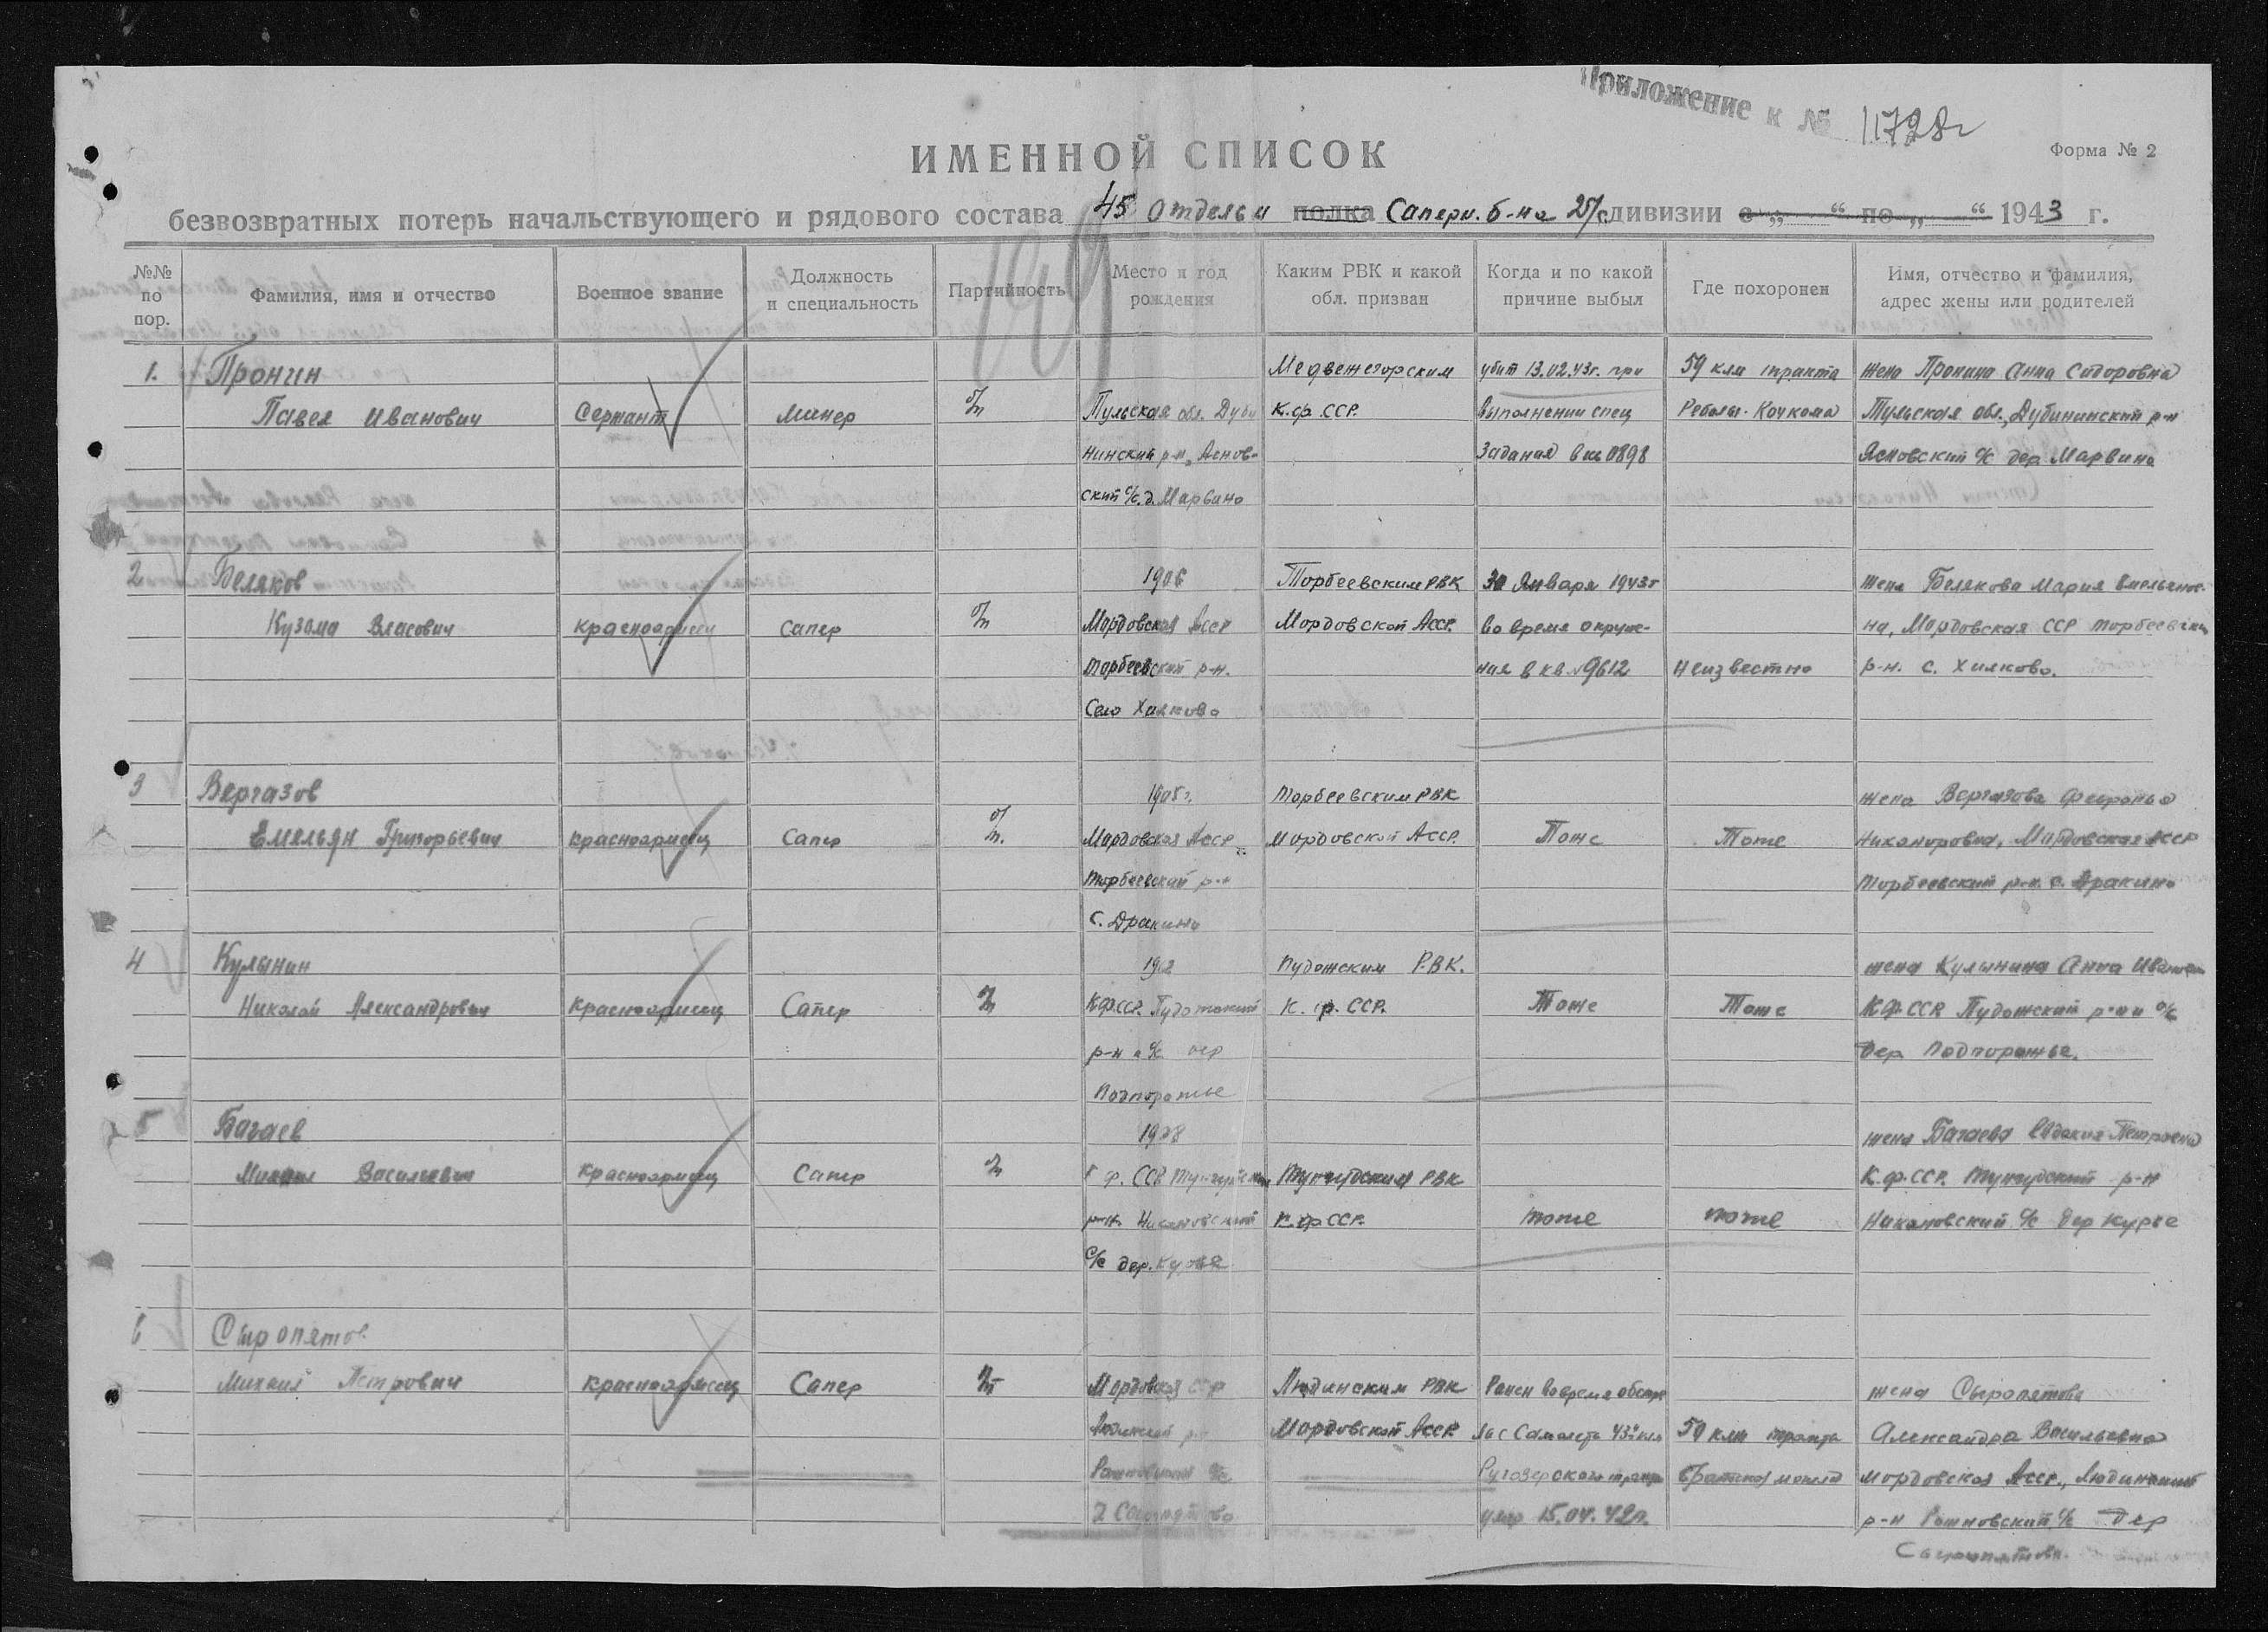 Приложение к № 11728с
Форма № 2
ИМЕННОЙ СПИСОК
безвозвратных потерь начальствующего и рядового состава 45 Отдельн полка Саперн. б-на 27 с дивизии с „ “ по „ “ 1943 г.
№№ по пор.
Фамилия, имя и отчество
Военное звание
Должность и специальность
Партийность
Место и год рождения
Каким РВК и какой обл. призван
Когда и по какой причине выбыл
Где похоронен
Имя, отчество и фамилия, адрес жены или родителей
1. Пронин Медвежегорским убит 13.02.43г. при 59 клм тракта жена Пронина Анна Сидоровна
Павел Иванович Сержант Минер б/п Тульская обл. Дуби К.ф.ССР. выполнении спец Реболы-Кочкома Тульская обл., Дубининский р-н
нинский р-н, Ясновс- Задания в кв 0898 Ясновский с/с дер Марвино
ский с/с. д. Марвино
2 Беляков 1906 Торбеевским РВК 30 Января 1943г жена Белякова Мария Емельянов-
Кузьма Власович красноармеец сапер б/п Мордовская Асср Мордовской Асср. во время окруже- на, Мордовская ССР торбеевский
торбеевский р-н. ния в кв. 9612 Неизвестно р-н. с. Хилково.
Село Хилково
3 Вергазов 1905г. торбеевским РВК жена Вергазова Февронья
Емельян Григорьевич красноармеец Сапер б/п. Мордовская Асср мордовской Асср. Тоже Тоже Никаноровна, Мордовская Асср
торбеевский р-н торбеевский р-н. с. Дракино
с. Дракино
4 Кулынин 1912 Пудожским Р.В.К. жена Кулынина Анна Иванов
Николай Александрович красноармеец Сапер б/п К.ф.сср. Пудожский К. ф. ССР. Тоже Тоже К.ф.ССР Пудожский р-н с/с
р-н с/с. дер дер Подпорожье.
Подпорожье
5 Багаев 1908 жена Багаева Евдокия Петровна
Михаил Васильевич красноармеец Сапер б/п К ф. ССР. Тунгудский Тунгудским РВК К.ф.ССР. Тунгудский р-н
р-н. К.ф ССР. тоже тоже с/с дер Курье
с/с дер. Курье
6 Сыропятов
Михаил Петрович красноармеец Сапер б/п Мордовская сср РВК Ранен во время обстре жена Сыропятова
Мордовской Асср ла с Самолета 43й клм 59 клм тракта Александра Васильевна
Ругозерского тракта братская могила мордовская Асср.,
умер 15.04.42г. р-н с/с дер